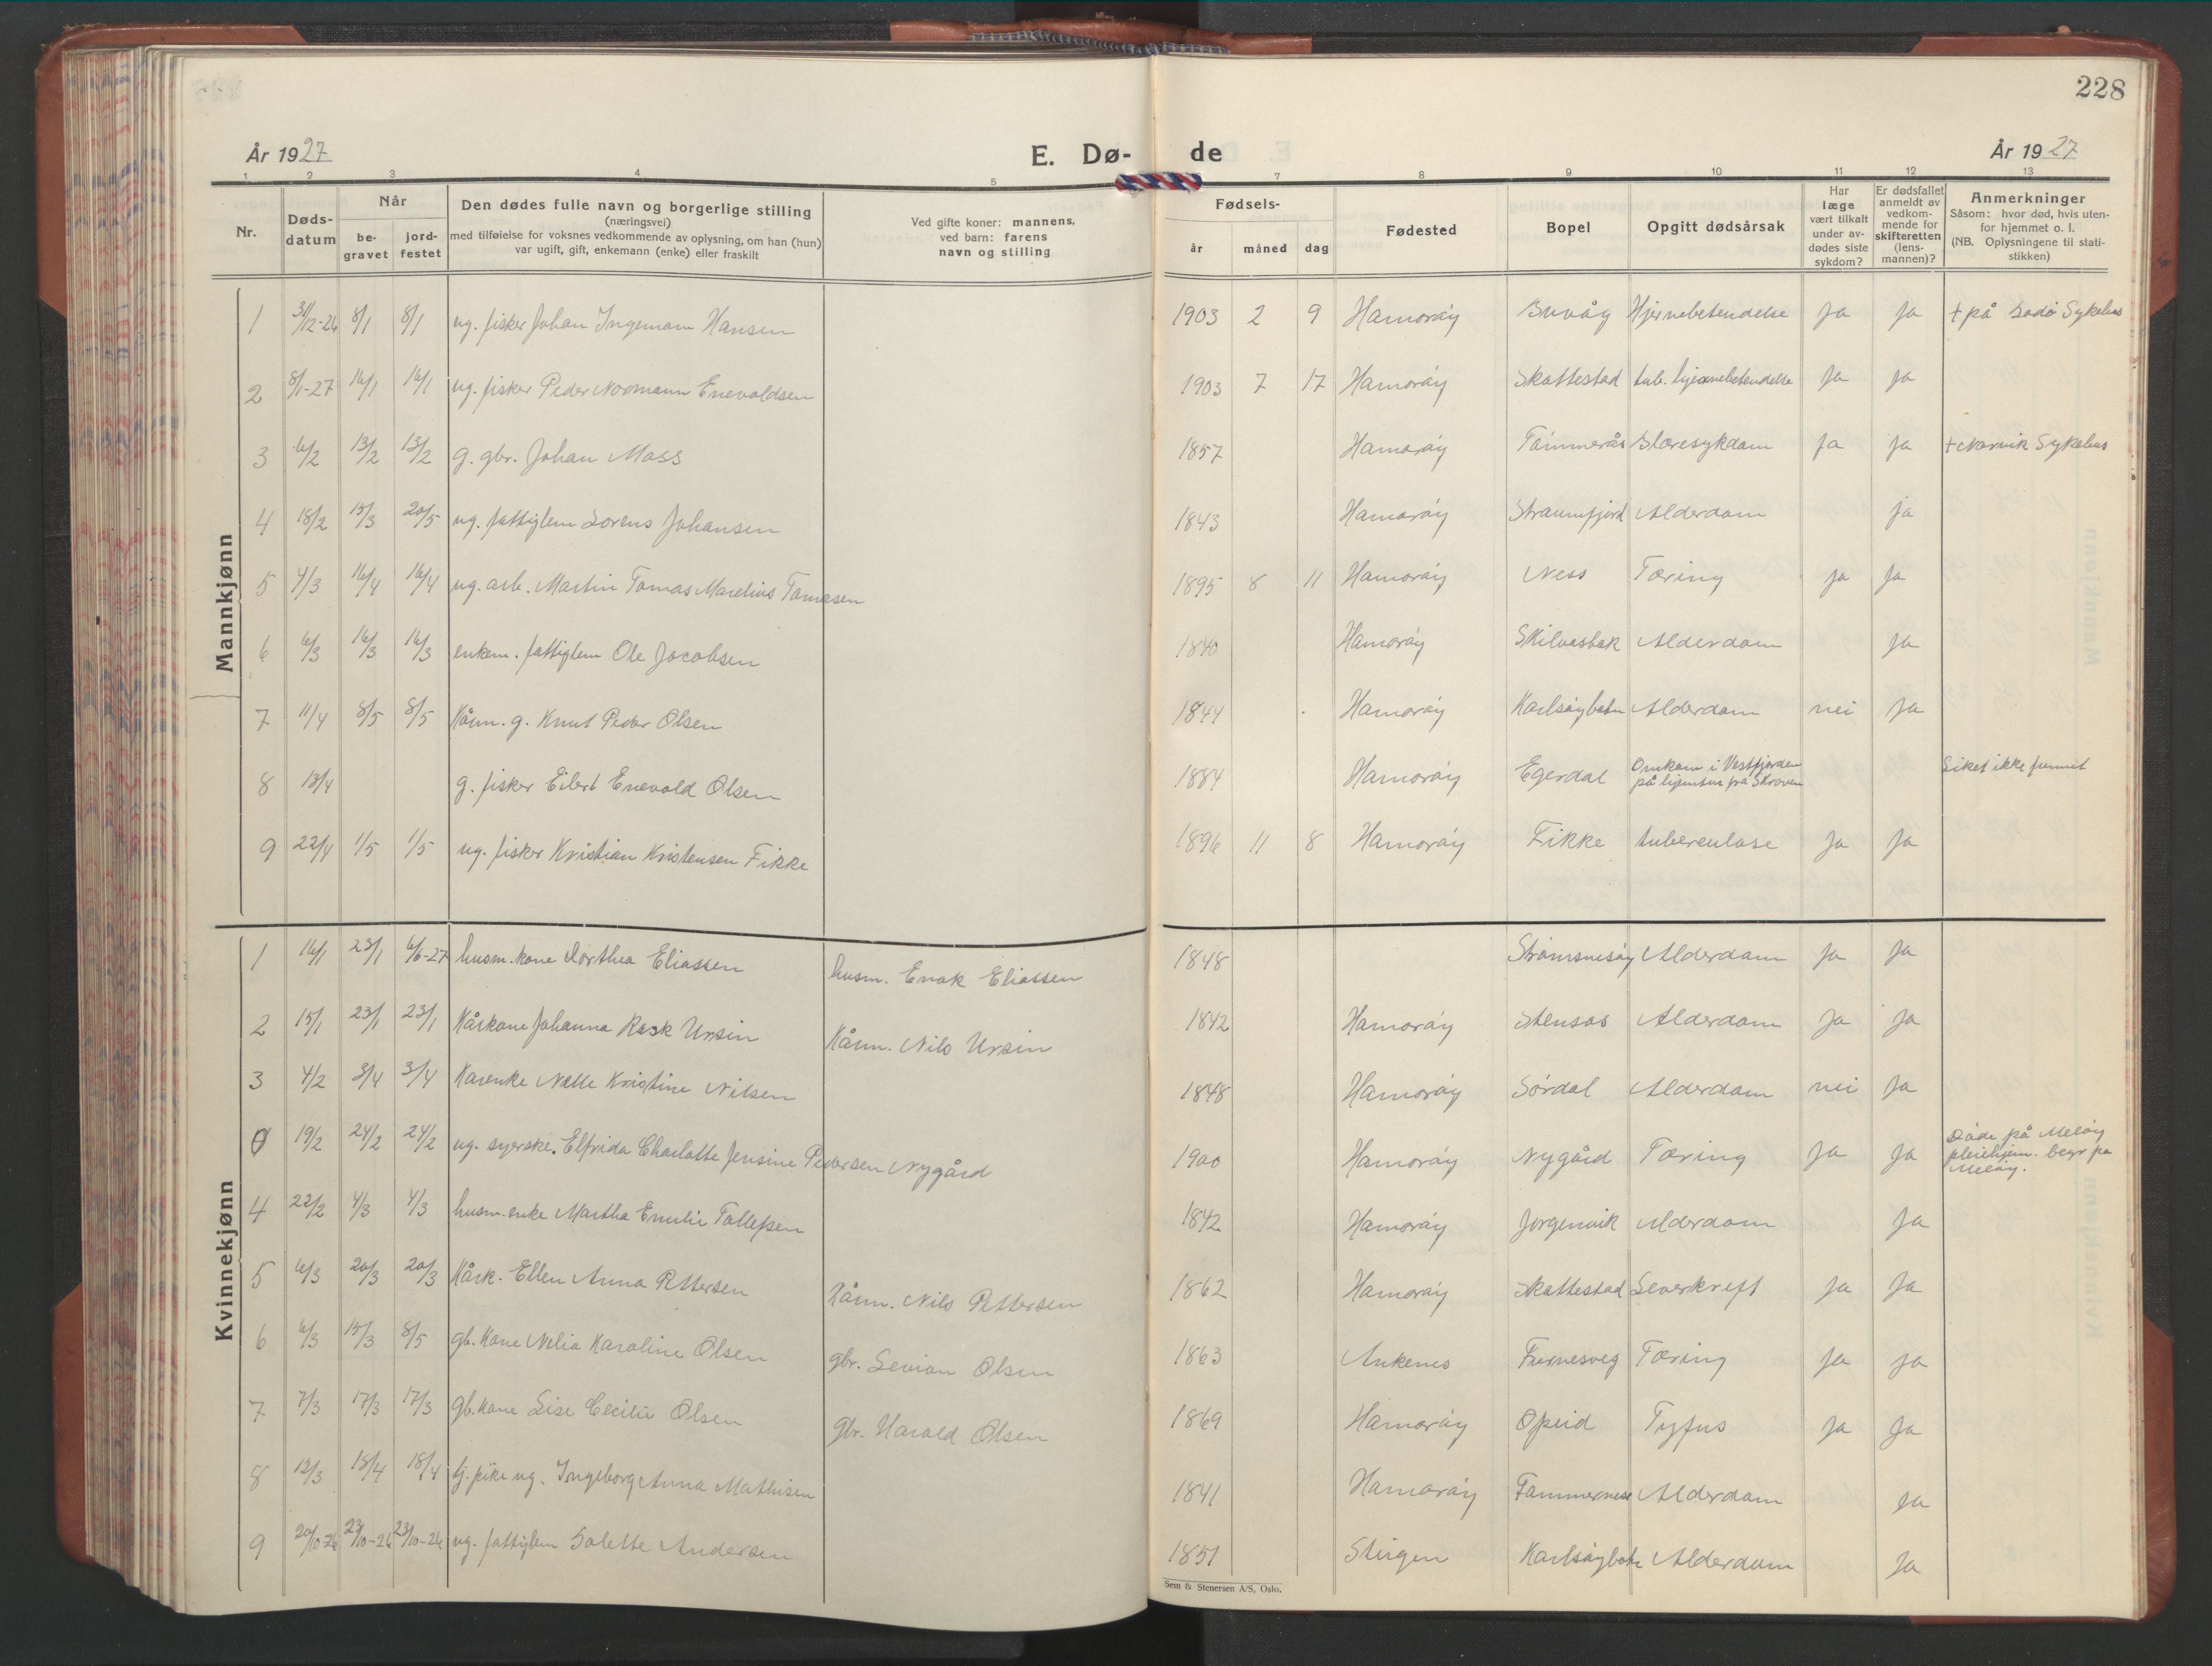 228
År 1927
E. Dø-
de
År 1927
1 2 3 4 5 7 8 9 10 11 12 13
Nr.
Døds-
datum
Når
be-
gravet
jord-
festet
Den dødes fulle navn og borgerlige stilling
(næringsvei)
med tilføielse for voksnes vedkommende av oplysning, om han (hun)
var ugift, gift, enkemann (enke) eller fraskilt
Ved gifte koner: mannens,
ved barn: farens
navn og stilling
Fødsels-
år måned dag
Fødested
Bopel
Opgitt dødsårsak
Har
læge
vært tilkalt
under av-
dødes siste
sykdom?
Er dødsfallet
anmeldt av
vedkom-
mende for
skifteretten
(lens-
mannen)?
Anmerkninger
Såsom: hvor død, hvis uten-
for hjemmet o. l.
(NB. Oplysningene til stati-
stikken)
Mannkjønn
1 31/12-26 8/1 8/1 ug. fisker Johan Ingemann Hansen 1903 2 9 Hamarøy Buvåg Hjernebetendelse Ja Ja + på Bodø Sykehus
2 8/1-27 16/1 16/1 ug. fisker Peder Normann Enevoldsen 1903 7 17 Hamarøy Skattestad tub. hjernebetendelse Ja Ja
3 6/2 13/2 13/2 g. gbr. Johan Mass 1857 Hamarøy Tømmerås Blæresykdom Ja Ja + Narvik Sykehus
4 18/2 15/3 20/5 ug. fattiglem Lorens Johansen 1843 Hamarøy Straumfjord Alderdom Ja
5 4/3 16/4 16/4 ug. arb. Martin Tomas Marelius Tomasen 1895 8 11 Hamarøy Ness Tæring Ja Ja
6 6/3 16/3 16/3 enkem. fattiglem Ole Jacobsen 1840 Hamarøy Skilvasbak Alderdom Ja
7 11/4 8/5 8/5 Kårm. g. Knut Peder Olsen 1844 Hamarøy Karlsøybotn Alderdom nei Ja
8 13/4 g. fisker Eilert Enevold Olsen 1884 Hamarøy Egerdal Omkom i Vestfjorden
på hjemtur fra Skroven Liket ikke funnet
9 22/4 1/5 1/5 ug. fisker Kristian Kristensen Fikke 1896 11 8 Hamarøy Fikke tuberculose Ja Ja
Kvinnekjønn
1 16/1 23/1 6/6-27 husm. kone Dorthea Eliassen husm. Enok Eliassen 1848 Strømsnesøy Alderdom Ja Ja
2 15/1 23/1 23/1 Kårkone Johanna Rask Ursin Kårm. Nils Ursin 1842 Hamarøy Stensås Alderdom Ja Ja
3 4/2 3/4 3/4 Kårenke Nelle Kristine Nilsen 1848 Hamarøy Sørdal Alderdom nei Ja
0 19/2 24/2 24/2 ug. syerske. Elfrida Charlotte Jensine Pedersen Nygård 1900 Hamarøy Nygård Tæring Ja Ja Døde på Meløy
pleiehjem. begr på
Meløy.
4 22/2 4/3 4/3 husm. enke Martha Emilie Tollefsen 1842 Hamarøy Jørgenvik Alderdom Ja
5 6/3 20/3 20/3 Kårk. Ellen Anna Pettersen Kårm. Nils Pettersen 1862 Hamarøy Skattestad Leverkreft Ja Ja
6 6/3 15/3 8/5 gb. kone Nelia Karoline Olsen gbr. Sevian Olsen 1863 Ankenes Furnesveg Tæring Ja Ja
7 7/3 17/3 17/3 gb. kone Lise Cecilie Olsen gbr. Harald Olsen 1869 Hamarøy Opeid Tyfus Ja Ja
8 12/3 18/4 18/4 tj. pike ug. Ingeborg Anna Mathisen 1841 Hamarøy Tømmernes Alderdom Ja
9 20/10-26 23/10-26 23/10-26 ug. fattiglem Solette Andersen 1851 Steigen Karlsøybotn Alderdom Ja
Sem & Stenersen A/S, Oslo.